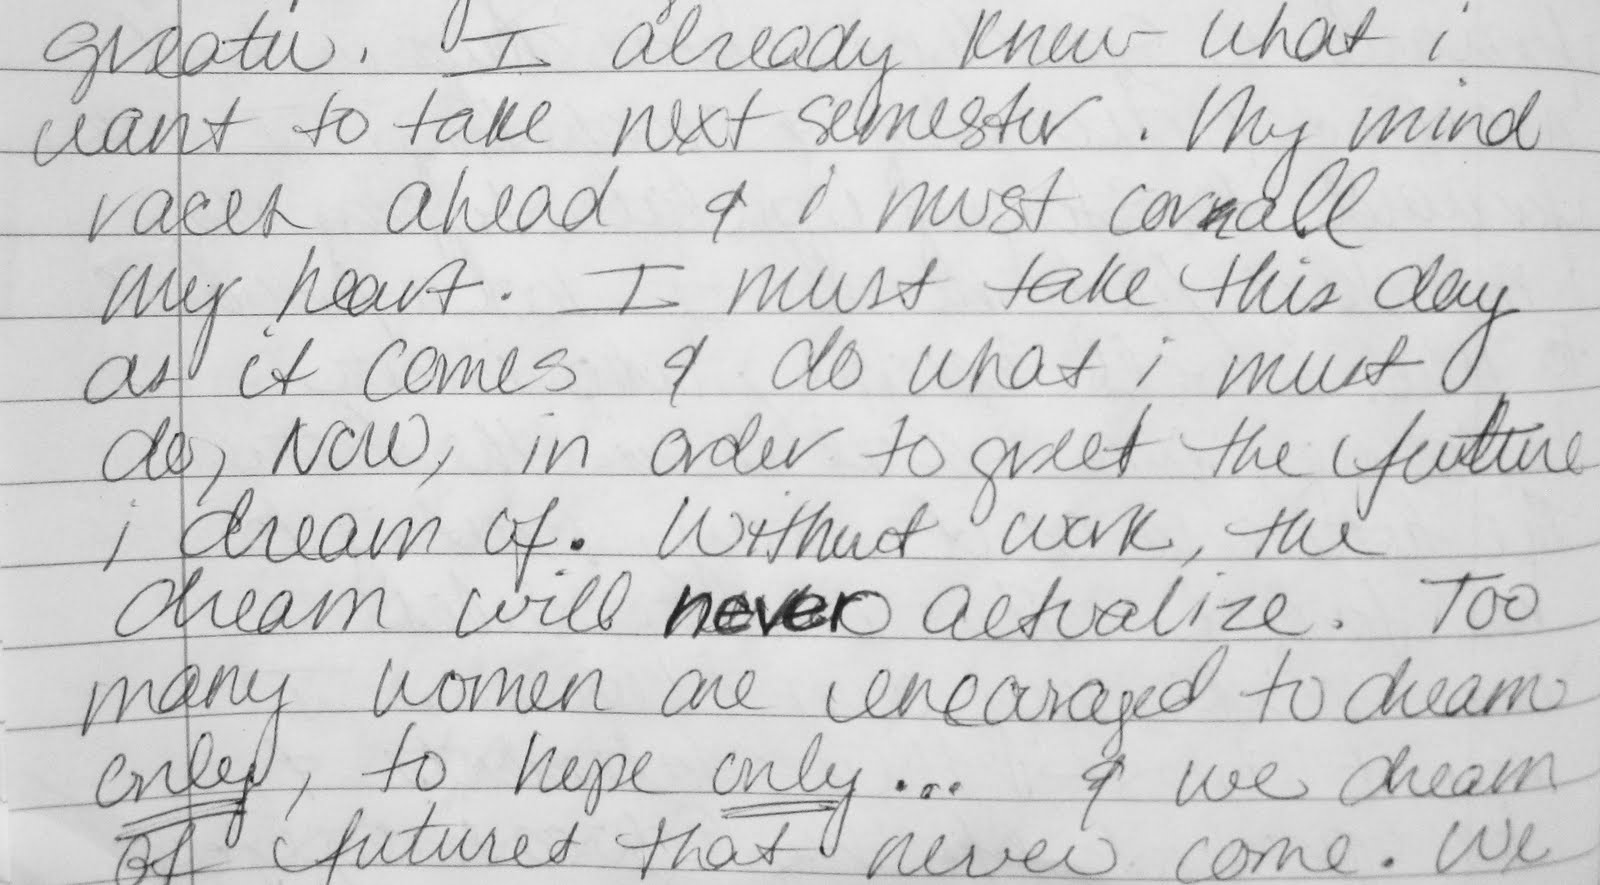 greater. I already know what i
want to take next semester. My mind
races ahead & i must corrall
my heart. I must take this day
as it comes & do what i must
do, NOW, in order to greet the future
i dream of. Without work, the
dream will never actualize. Too
many women are encouraged to dream
only, to hope only... & we dream
of futures that never come. We